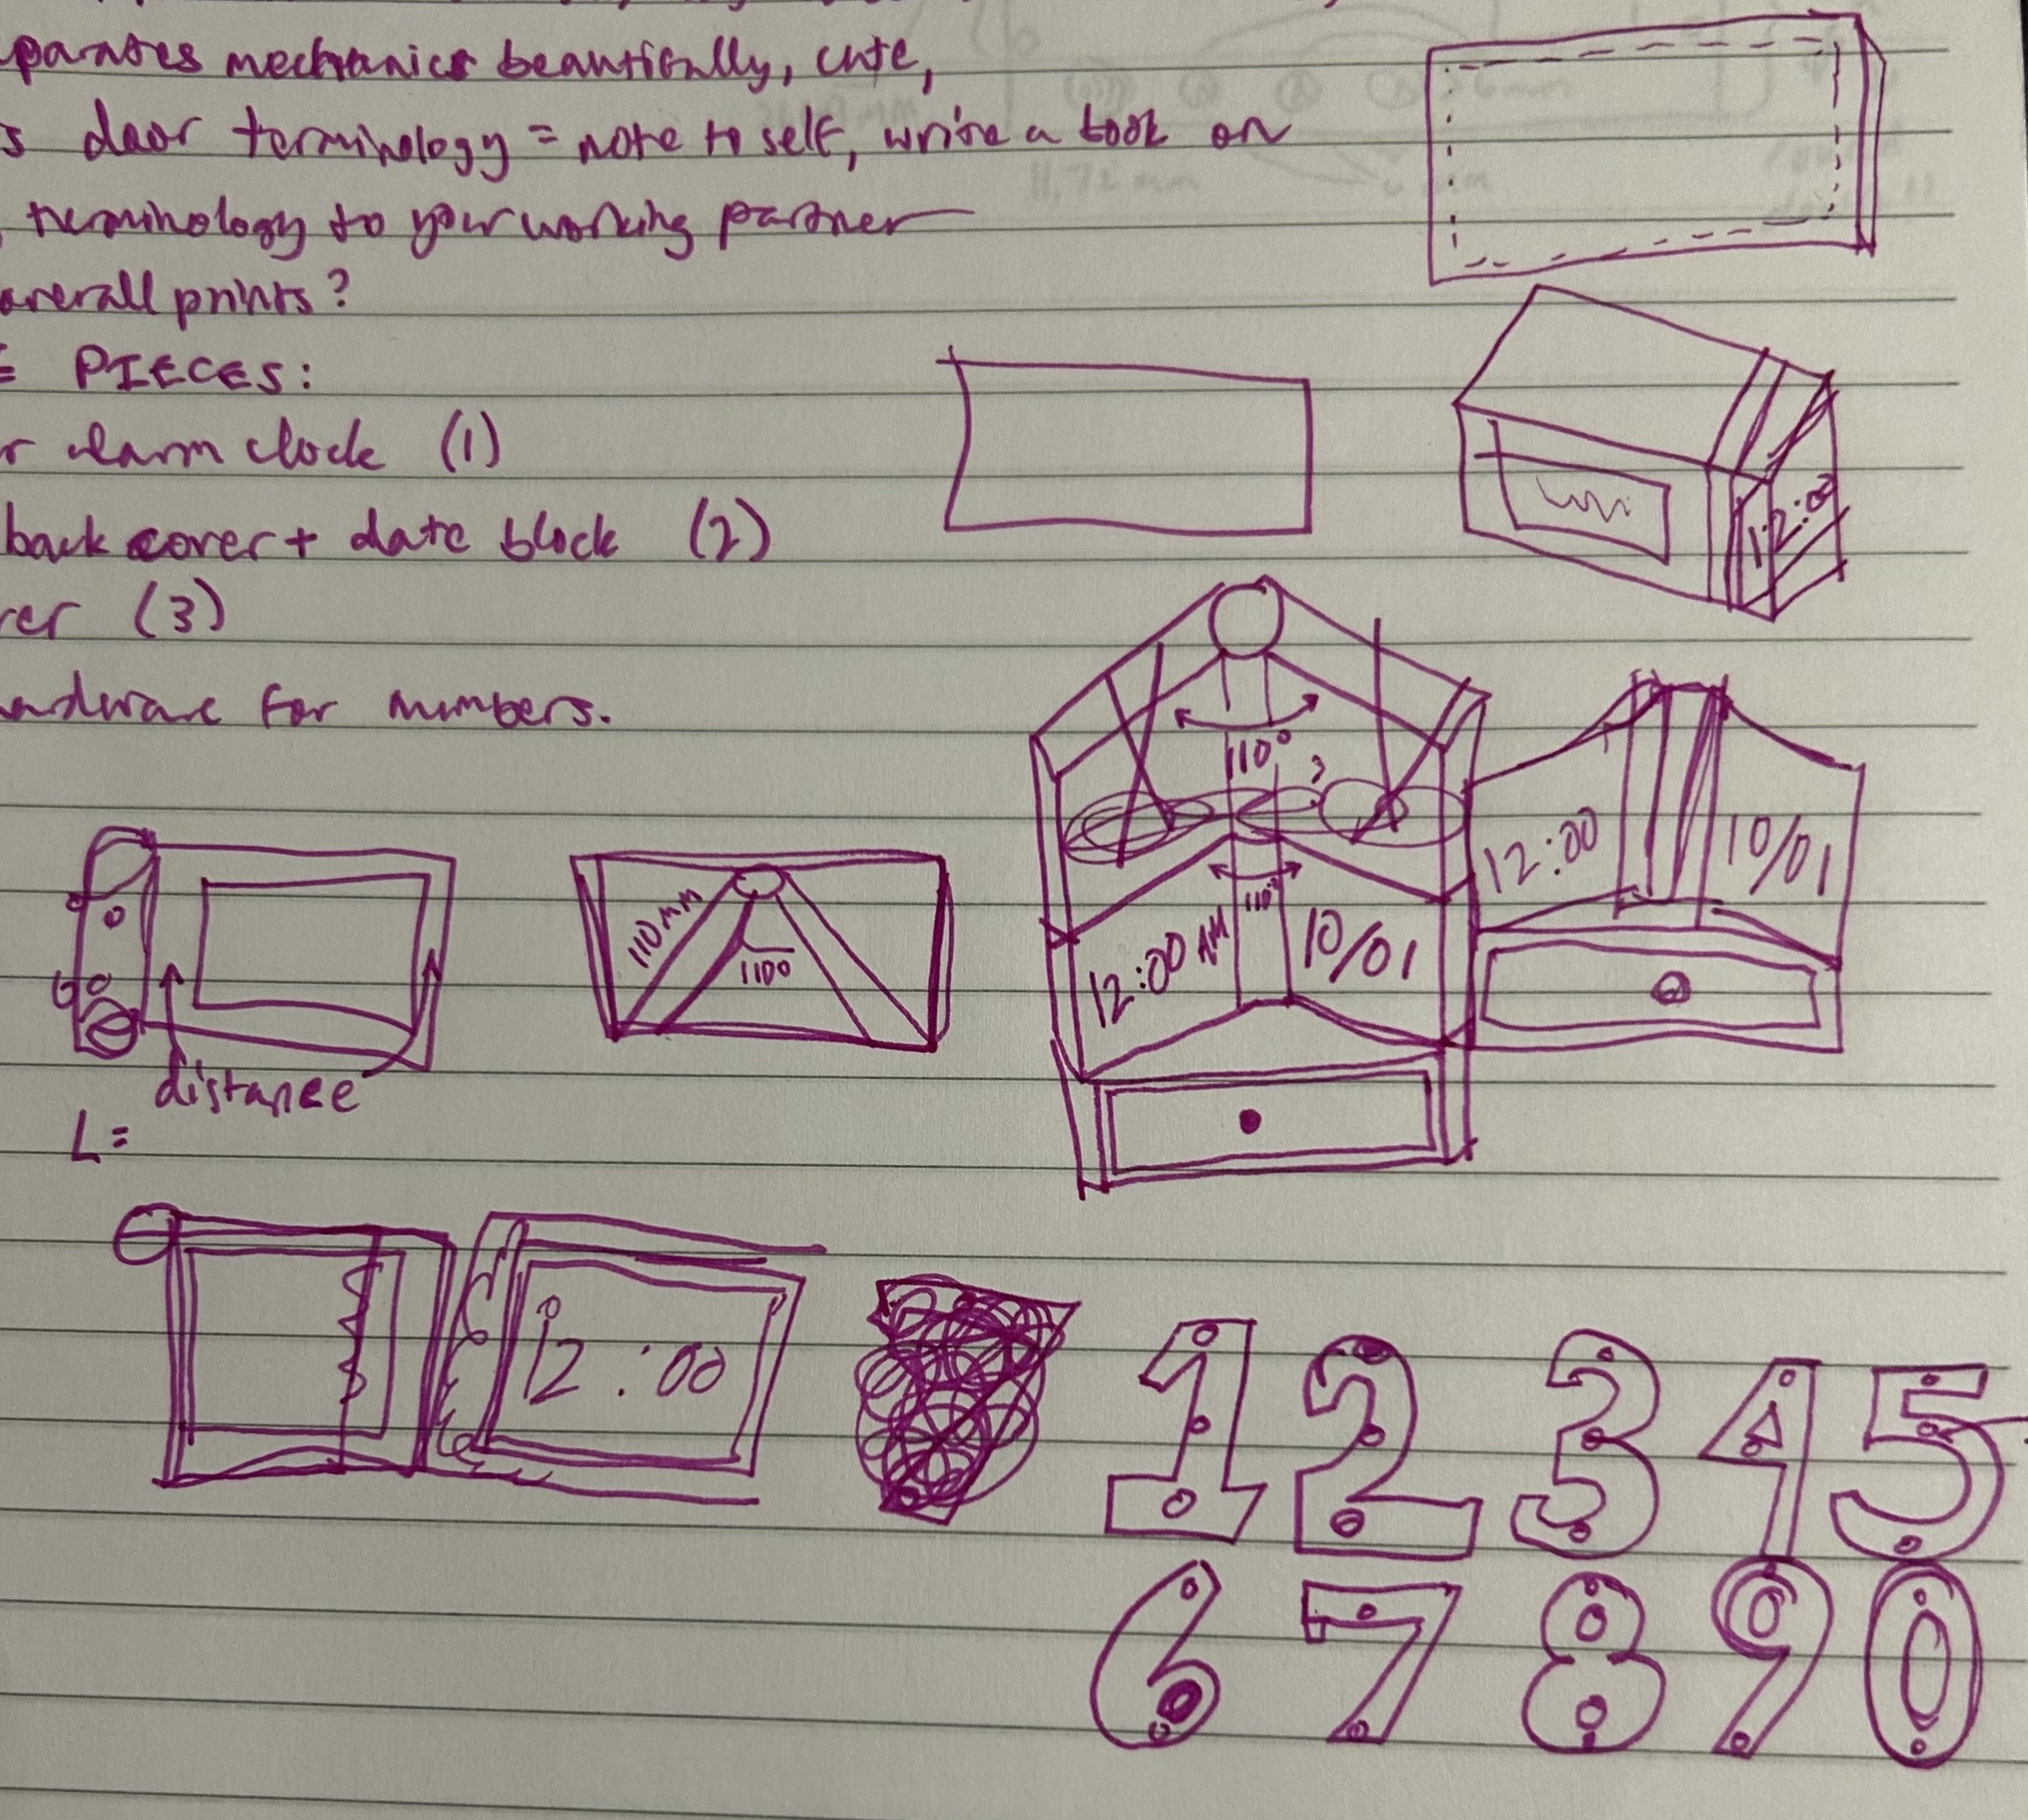 parates mechanics beautifully, cute,
s door terminology = note to self, write a book on
terminology to your working partner
overall prints?
PIECES:
r alarm clock (1)
back cover + date block (2)
rer (3)
hardware for numbers.
12:00
110°
?
110°
12:00 AM
10/01
12:00
10/01
110MM
110°
distance
L=
12:00
1 2 3 4 5
6 7 8 9 0
11,72 mm